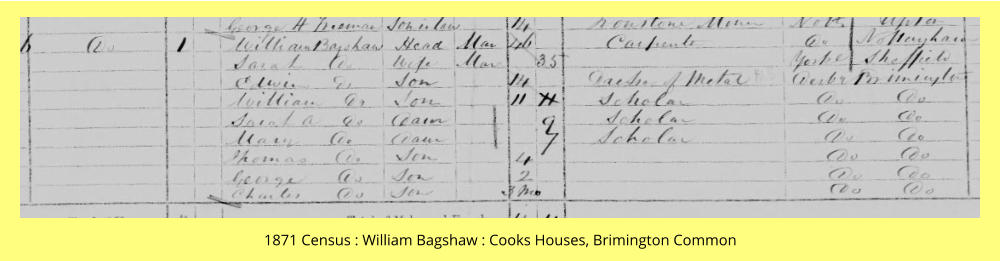 George H Son in law 14 Ironstone Miner Upton
6 Do 1 William Bagshaw Head Mar 46 Carpenter Do Nottingham
Sarah Do Wife Mar 35 Yorks Sheffield
Edwin Do Son 14 of Metal Derby Brimington
William Do Son 11 Scholar Do Do
Sarah A Do Daur 9 Scholar Do Do
Mary Do Daur 7 Scholar Do Do
Thomas Do Son 4 Do Do
George Do Son 2 Do Do
Charles Do Son 3 Mo Do Do
1871 Census : William Bagshaw : Cooks Houses, Brimington Common